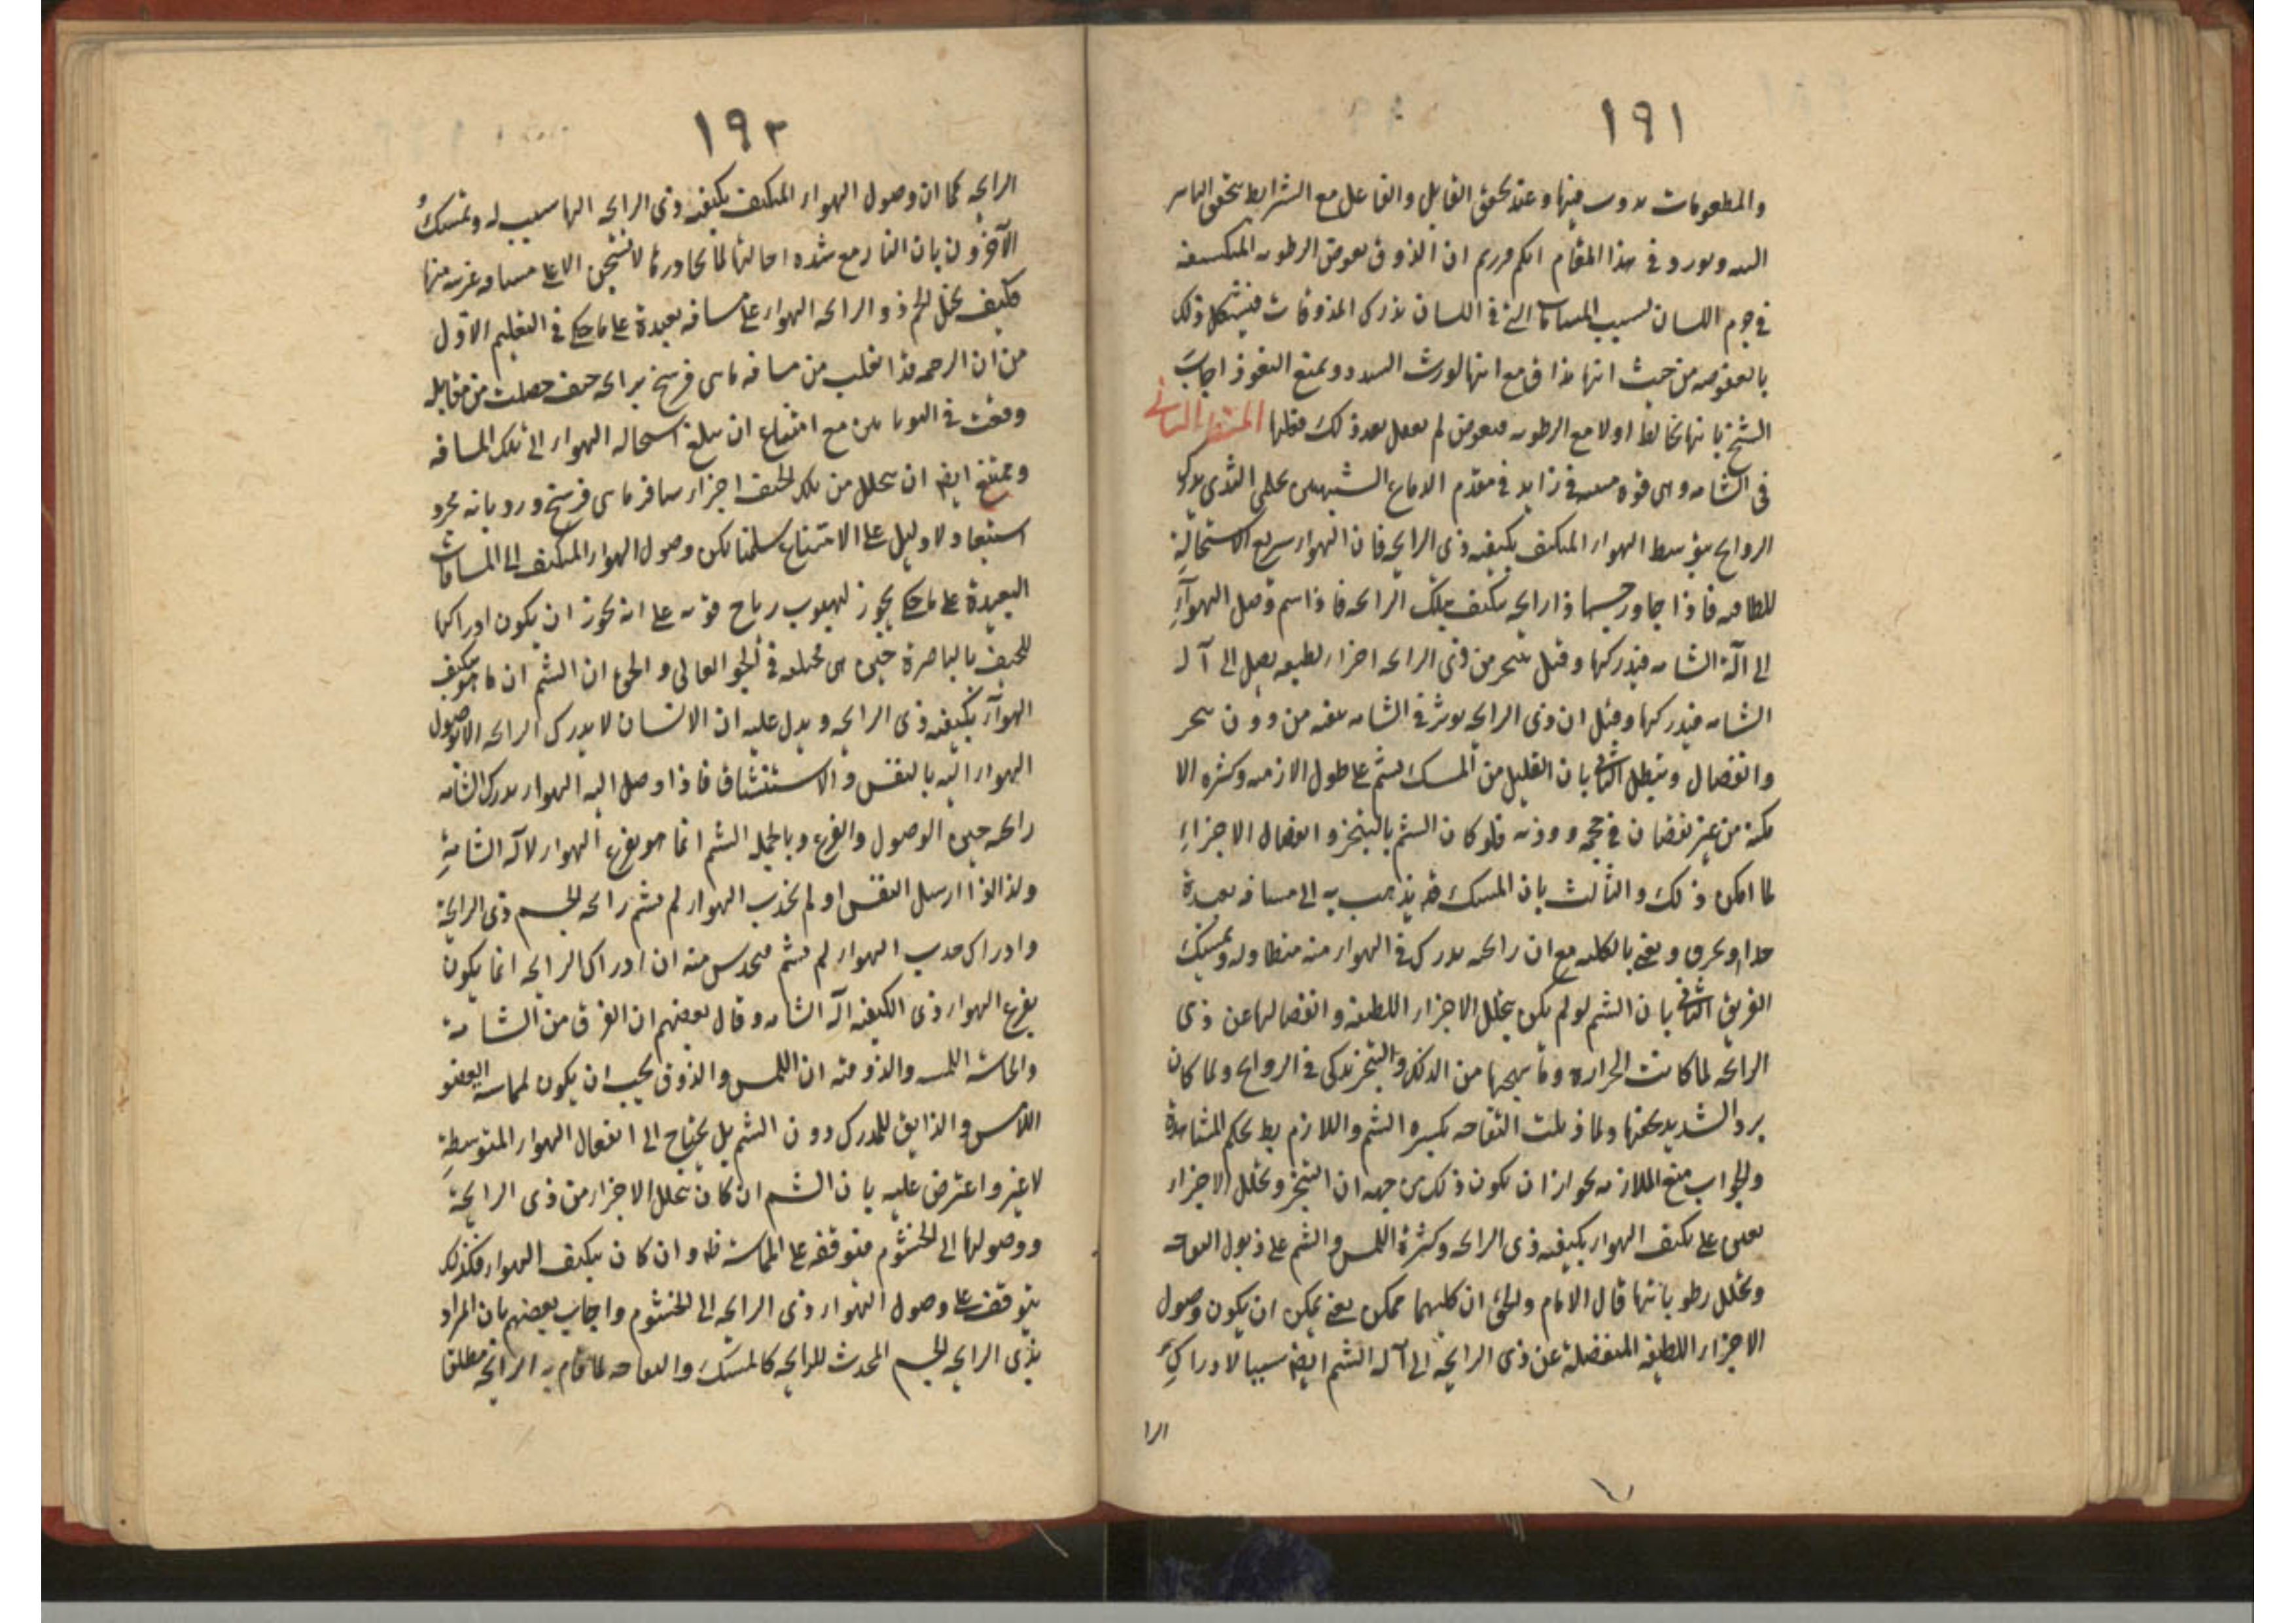 ١٩١
والمطعومات فيها وعند تحقق القابل والفاعل مع الشرايط تحقق
ويورد في هذا المقام انكم قررتم ان الذوق بغوص الرطوبه المتكيفه
في جرم اللسان بسبب المسامات التي في اللسان يدرك المذوقات فيشكل ذلك
بالعفوصه من حيث انها مذاق مع انها تورث السدد وتمنع النفوذ اجاب
الشيخ بانها تخالط اولا مع الرطوبه فيغوص ثم يفعل بعد ذلك فعلها المنظر الثاني
في الشامه وهى قوه فى زايد فى مقدم الدماغ الشبهين بحلمى الثدى يدرك
الروايح بتوسط الهواء المتكيف بكيفيه ذى الرايحه فان الهواء سريع الاستحالة
للطافته فاذا جاور جسما ذا رايحه يتكيف بتلك الرايحه فاذا شم وصل الهوآء
الى آلة الشامه فيدركها وقيل يتبخر من ذى الرايحه اجزاء لطيفه يصل الى آله
الشامه فيدركها وقيل ان ذى الرايحه يوثر فى الشامه من دون تبخر
وانفصال ويبطل الثاني بان القليل من المسك يشم على طول الازمنه وكثرة الا
مكنه من غير نقصان في حجمه ووزنه فلو كان الشم بالتبخر وانفصال الاجزاء
لما امكن ذلك والثالث بان المسك قد يذهب به الى مسافه بعيدة
جدا ويحرق ويفنى بالكليه مع ان رائحته يدرك فى الهواء مدة متطاوله وتمسك
الفريق الثاني بان الشم لو لم يكن بتحلل الاجزاء اللطيفه وانفصالها عن ذى
الرائحه لما كانت الحراره وما يهيجها من الدلك والتبخر تذكى فى الروايح ولما كان
برد الشديد يخفيها ولما ذبلت التفاحه بكثره الشم واللازم بط بحكم المشاهدة
والجواب منع الملازمه بجواز ان يكون ذلك من جهه ان التبخر وتحلل الاجزاء
يعين على تكيف الهواء بكيفيه ذى الرائحه وكثرة اللمس والشم على ذبول التفاحه
وتحلل رطوباتها قال الامام والحق ان كليهما ممكن يعنى يمكن ان يكون وصول
الاجزاء اللطيفه المنفصلة عن ذى الرايحه الى آله الشم ايضا سببا لادراك
الرا
١٩٢
الرايحه كما ان وصول الهواء المتكيف بكيفيه ذى الرايحه اليها سبب له وتمسك
الآخرون بان النار مع شده احالتها لما يجاورها لا تسخن الا على مسافه قريبه منها
فكيف يحيل الجسم ذو الرايحه الهواء على مسافه بعيدة على ما حكى فى التعليم الاول
من ان الرخمه قد انتقلت من مسافه ماى فرسخ برايحه جيف حصلت من مقاتله
وقعت فى اليونانيين مع امتناع ان يبلغ استحاله الهواء الى تلك المسافه
ويمتنع ايضا ان يتحلل من تلك الجيف اجزاء يسافر ماى فرسخ ورد بانه مجرد
استبعاد ولا دليل على الامتناع سلمنا لكن وصول الهواء المتكيف الى المسافات
البعيدة على ما حكى يجوز لهبوب رياح قويه على انه يجوز ان يكون ادراكها
للجيف بالباصرة حين هى محلقه فى الجو العالى والحق ان الشم انما هو بتكيف
الهوآء بكيفيه ذى الرايحه ويدل عليه ان الانسان لا يدرك الرايحه الا بوصول
الهواء اليه بالتنفس والاستنشاق فاذا وصل اليه الهواء يدرك الشامه
رائحه حين الوصول والقرع وبالجمله الشم انما هو بقرع الهواء لآله الشامة
ولذا لو ارسل النفس او لم يجذب الهواء لم يشم رائحه الجسم ذى الرايحة
وادراك الهواء لم يشم فيحدس منه ان ادراك الرايحه انما يكون
بقرع الهواء ذى الكيفيه آله الشامه وقال بعضهم ان الفرق بين الشامة
والذوقه ان اللمس والذوق يجب ان يكون لمماسه العضو
اللامس والذايق للمدرك دون الشم بل يحتاج الى انفعال الهواء المتوسطة
لا غير واعترض عليه بان الشم ان كان بتحلل الاجزاء من ذى الرايحة
ووصولها الى الخيشوم فتوقفه على المماسة ظ وان كان بتكيف الهواء فكذلك
يتوقف على وصول الهواء ذى الرايحه الى الخيشوم واجاب بعضهم بان المراد
بذى الرايحه الجسم المحدث للرايحه كالمسك والتفاحه لا ما قام به الرايحه مطلقا